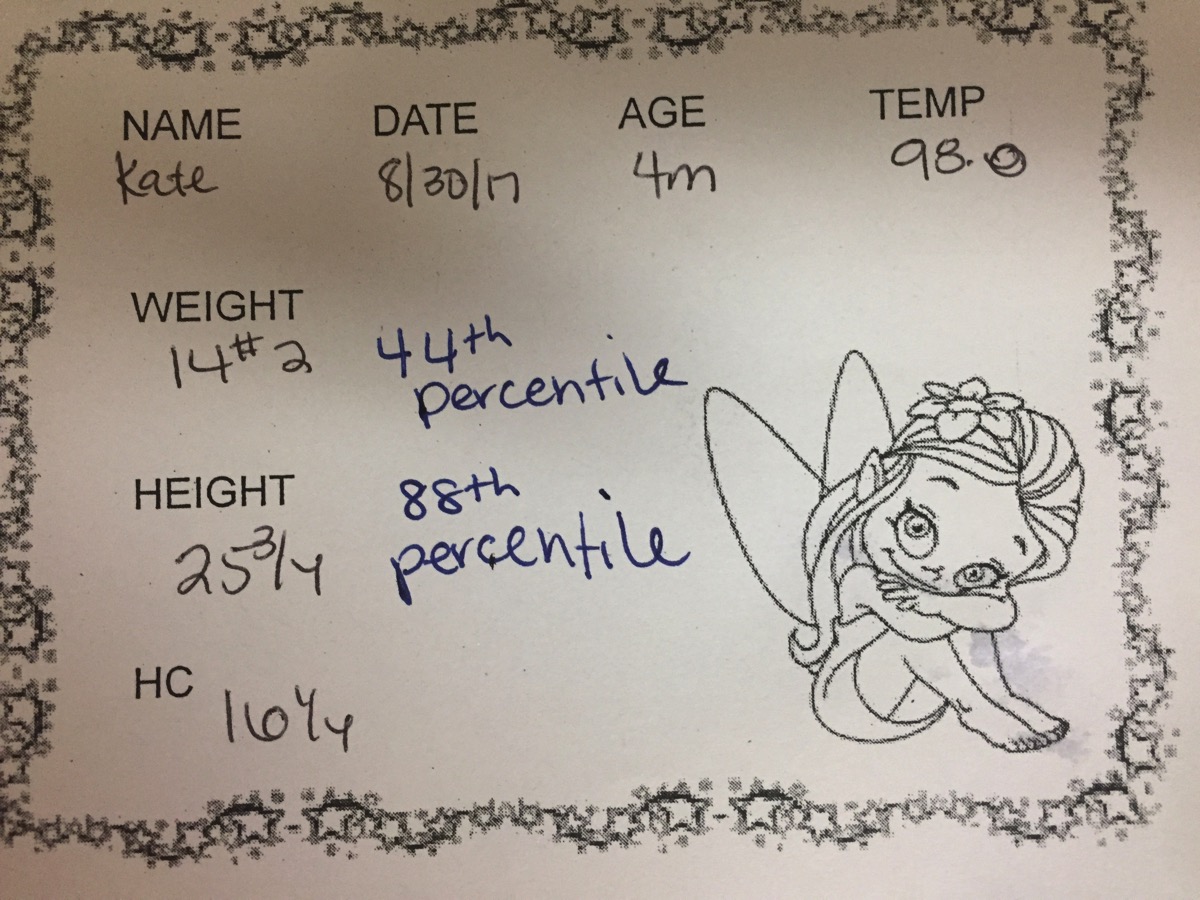 NAME DATE AGE TEMP
Kate 8/30/17 4m 98.0
WEIGHT
14# 2 44th
percentile
HEIGHT 88th
25 3/4 percentile
HC
16 1/4